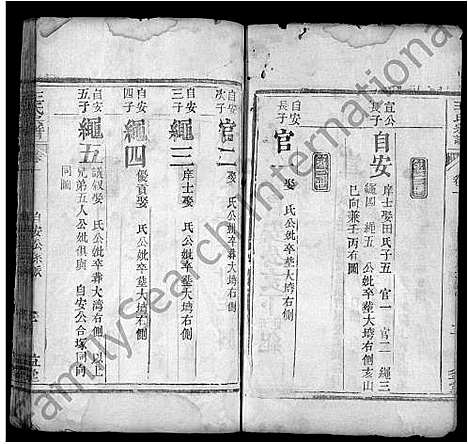 宣公
長子
自安
庠士娶田氏子五 官一 官二 繩三
繩四 繩五 公妣卒塟大塆右側亥山
巳向兼壬丙有圖
自安
長子
官一
娶 氏公妣卒塟大塆右側
自安
次子
官二
娶 氏公妣卒塟大塆右側
自安
三子
繩三
庠士娶 氏公妣卒塟大塆右側
自安
四子
繩四
優貢娶 氏公妣卒塟大塆右側
自安
五子
繩五
議叙娶 氏公妣卒葬大灣右側 以上
兄弟五人公妣俱與 自安公合塚同向
同圖
自安公系派
FamilySearch International